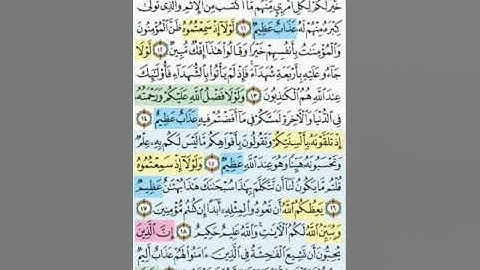 خَيْرٌ لَّكُمْ لِكُلِّ ٱمْرِئٍ مِّنْهُم مَّا ٱكْتَسَبَ مِنَ ٱلْإِثْمِ وَٱلَّذِى تَوَلَّىٰ
كِبْرَهُۥ مِنْهُمْ لَهُۥ عَذَابٌ عَظِيمٌ ١١ لَّوْلَآ إِذْ سَمِعْتُمُوهُ ظَنَّ ٱلْمُؤْمِنُونَ
وَٱلْمُؤْمِنَٰتُ بِأَنفُسِهِمْ خَيْرًا وَقَالُوا۟ هَٰذَآ إِفْكٌ مُّبِينٌ ١٢ لَّوْلَا
جَآءُو عَلَيْهِ بِأَرْبَعَةِ شُهَدَآءَ فَإِذْ لَمْ يَأْتُوا۟ بِٱلشُّهَدَآءِ فَأُو۟لَٰٓئِكَ
عِندَ ٱللَّهِ هُمُ ٱلْكَٰذِبُونَ ١٣ وَلَوْلَا فَضْلُ ٱللَّهِ عَلَيْكُمْ وَرَحْمَتُهُۥ
فِى ٱلدُّنْيَا وَٱلْءَاخِرَةِ لَمَسَّكُمْ فِى مَآ أَفَضْتُمْ فِيهِ عَذَابٌ عَظِيمٌ ١٤
إِذْ تَلَقَّوْنَهُۥ بِأَلْسِنَتِكُمْ وَتَقُولُونَ بِأَفْوَاهِكُم مَّا لَيْسَ لَكُم بِهِۦ عِلْمٌ
وَتَحْسَبُونَهُۥ هَيِّنًا وَهُوَ عِندَ ٱللَّهِ عَظِيمٌ ١٥ وَلَوْلَآ إِذْ سَمِعْتُمُوهُ
قُلْتُم مَّا يَكُونُ لَنَآ أَن نَّتَكَلَّمَ بِهَٰذَا سُبْحَٰنَكَ هَٰذَا بُهْتَٰنٌ عَظِيمٌ
١٦ يَعِظُكُمُ ٱللَّهُ أَن تَعُودُوا۟ لِمِثْلِهِۦٓ أَبَدًا إِن كُنتُم مُّؤْمِنِينَ ١٧
وَيُبَيِّنُ ٱللَّهُ لَكُمُ ٱلْءَايَٰتِ وَٱللَّهُ عَلِيمٌ حَكِيمٌ ١٨ إِنَّ ٱلَّذِينَ
يُحِبُّونَ أَن تَشِيعَ ٱلْفَٰحِشَةُ فِى ٱلَّذِينَ ءَامَنُوا۟ لَهُمْ عَذَابٌ أَلِيمٌ